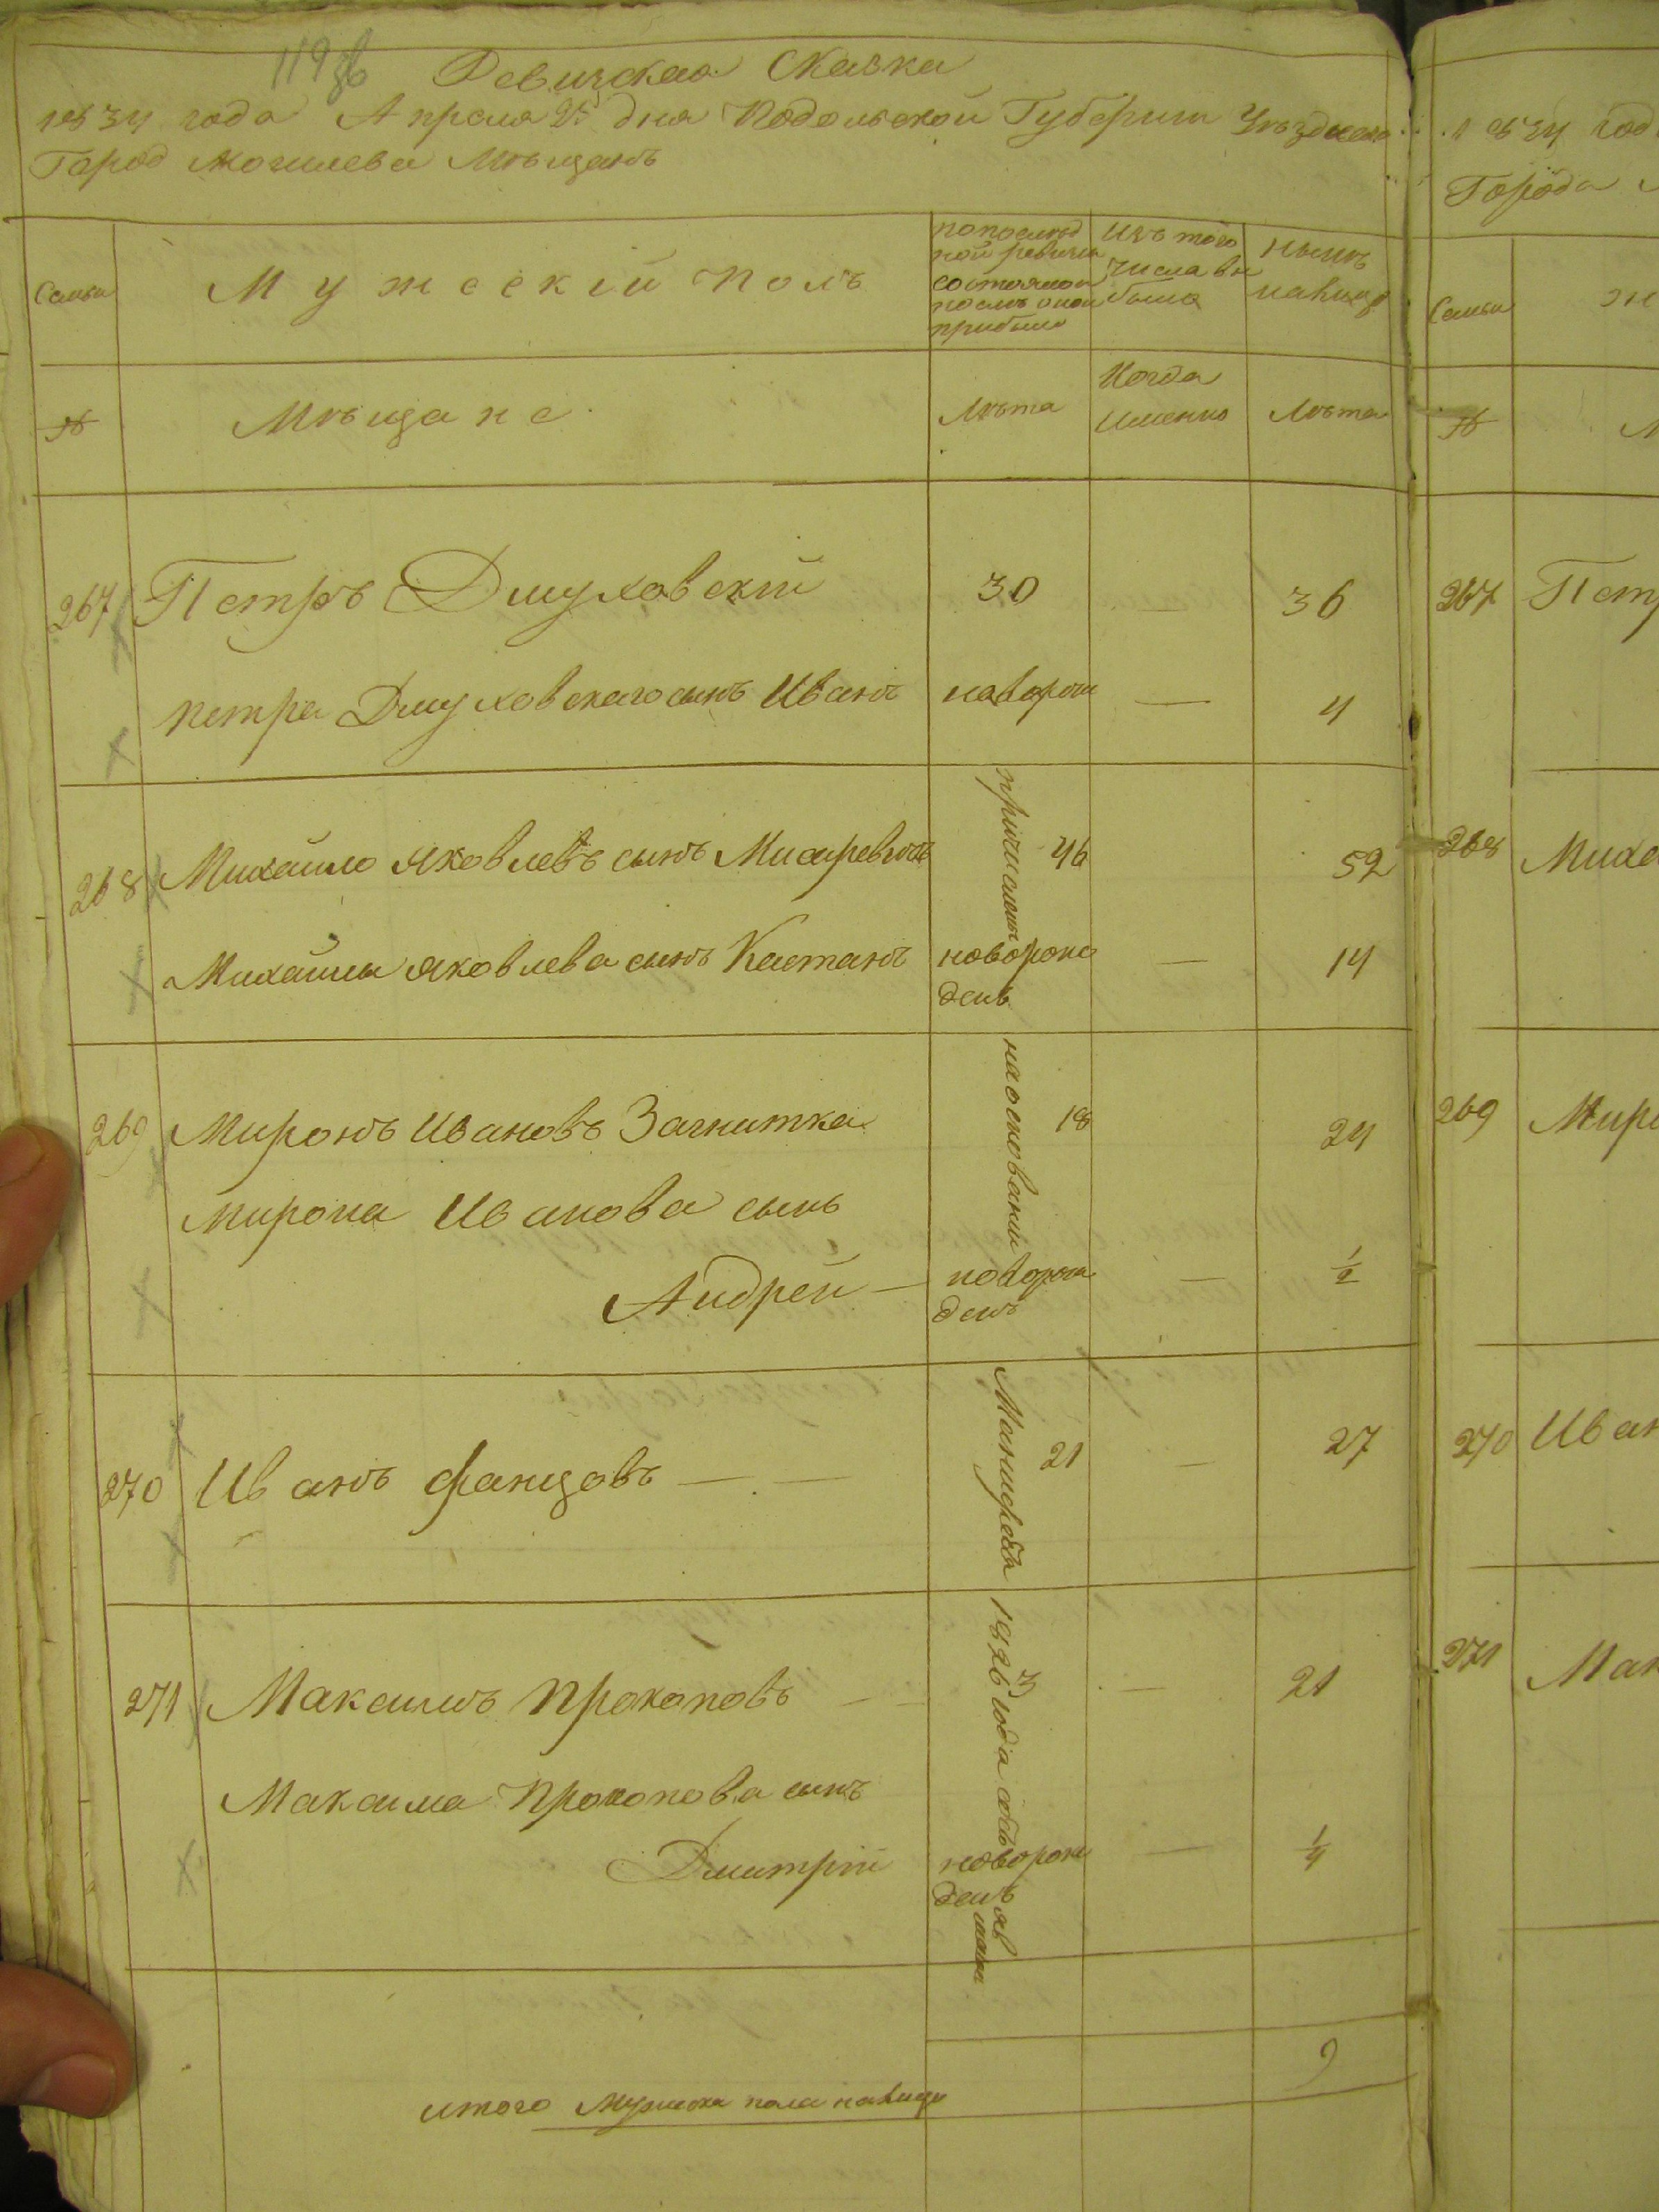 Ревизская Сказка
1834 года Апреля 25 дня Подольской Губернии Уѣзднаго
Город Могилева Мѣщанъ
Семьи
Мужескій полъ
по послѣд
ной ревизіи
состояло и
послѣ оной
прибыло
изъ того
числа вы
было
нынѣ
налицо
№
Мѣщане
Лѣта
Когда
именно
Лѣта
267 Петръ Дмуховскій 30 — 36
Петра Дмуховскаго сынъ Иванъ неворож — 4
268 Михайло Яковлевъ сынъ 46 52
Михайлы Яковлева сынъ Кастанъ новорож — 14
денъ
269 Миронъ Ивановъ Загнитка 18 24
Мирона Иванова сынъ
Андрей — новорож — 1/2
денъ
270 Иванъ Фанцовъ — — 21 — 27
271 Максимъ Прокоповъ — — — 21
Максима Прокопова сынъ
Дмитрій новорож — 1/4
денъ
причислены
на основаніи
Манифеста
1826 года
итого Мужеска пола налицо 9
1834 год
Города
Семьи
№
267 Петр
268 Миха
269 Миро
270 Иван
271 Мак